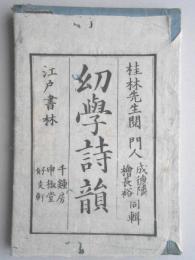 桂林先生閲 門人 成德隣
檜長裕 同輯
幼學詩韻
江戸書林
千鍾房
申椒堂
好文軒